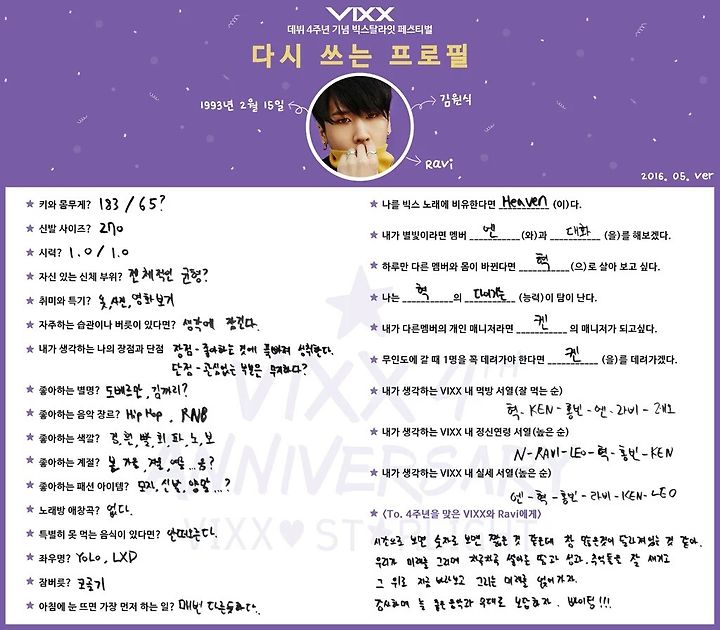 VIXX
데뷔 4주년 기념 빅스탈라잇 페스티벌
다시 쓰는 프로필
1993년 2월 15일
김원식
Ravi
2016. 05. ver
★ 키와 몸무게? 183 / 65?
★ 신발 사이즈? 270
★ 시력? 1.0 / 1.0
★ 자신 있는 신체 부위? 전체적인 균형?
★ 취미와 특기? 옷, 사진, 영화보기
★ 자주하는 습관이나 버릇이 있다면? 생각에 잠긴다.
★ 내가 생각하는 나의 장점과 단점 장점 - 좋아하는 것에 푹빠져 성취한다.
단점 - 관심없는 부분은 무지하다?
★ 좋아하는 별명? 도베르만, 김까리?
★ 좋아하는 음악 장르? Hip Hop, RNB
★ 좋아하는 색깔? 검, 흰, 빨, 회, 파, 노, 보
★ 좋아하는 계절? 봄, 가을, 겨울, 여름...음?
★ 좋아하는 패션 아이템? 모자, 신발, 양말...?
★ 노래방 애창곡? 없다.
★ 특별히 못 먹는 음식이 있다면?
★ 좌우명? YoLo, LXD
★ 잠버릇? 코골기
★ 아침에 눈 뜨면 가장 먼저 하는 일? 매번 다른듯하다.
★ 나를 빅스 노래에 비유한다면 Heaven (이)다.
★ 내가 별빛이라면 멤버 엔 (와)과 대화 (을)를 해보겠다.
★ 하루만 다른 멤버와 몸이 바뀐다면 혁 (으)로 살아 보고 싶다.
★ 나는 혁 의 (능력)이 탐이 난다.
★ 내가 다른멤버의 개인 매니저라면 켄 의 매니저가 되고싶다.
★ 무인도에 갈 때 1명을 꼭 데려가야 한다면 켄 (을)를 데려가겠다.
★ 내가 생각하는 VIXX 내 먹방 서열(잘 먹는 순)
혁 - KEN - 홍빈 - 엔 - 라비 - 레오
★ 내가 생각하는 VIXX 내 정신연령 서열(높은 순)
N - RAVI - LEO - 혁 - 홍빈 - KEN
★ 내가 생각하는 VIXX 내 실세 서열(높은 순)
엔 - 혁 - 홍빈 - 라비 - KEN - LEO
★ <To. 4주년을 맞은 VIXX와 Ravi에게>
시간으로 보면 숫자로 보면 짧은 것 같은데 참 많은것이 달라져있는 것 같아.
우리가 미래를 그리며 차곡차곡 쌓아온 땀과 성과, 추억들을 잘 새기고
그 위로 지금 바라보고 그리는 미래를 얹어가자.
감사하며 늘 좋은음악과 무대로 보답하자. 빠이팅!!!
VIXX 4TH
ANNIVERSARY
VIXX♥ST★RLIGHT